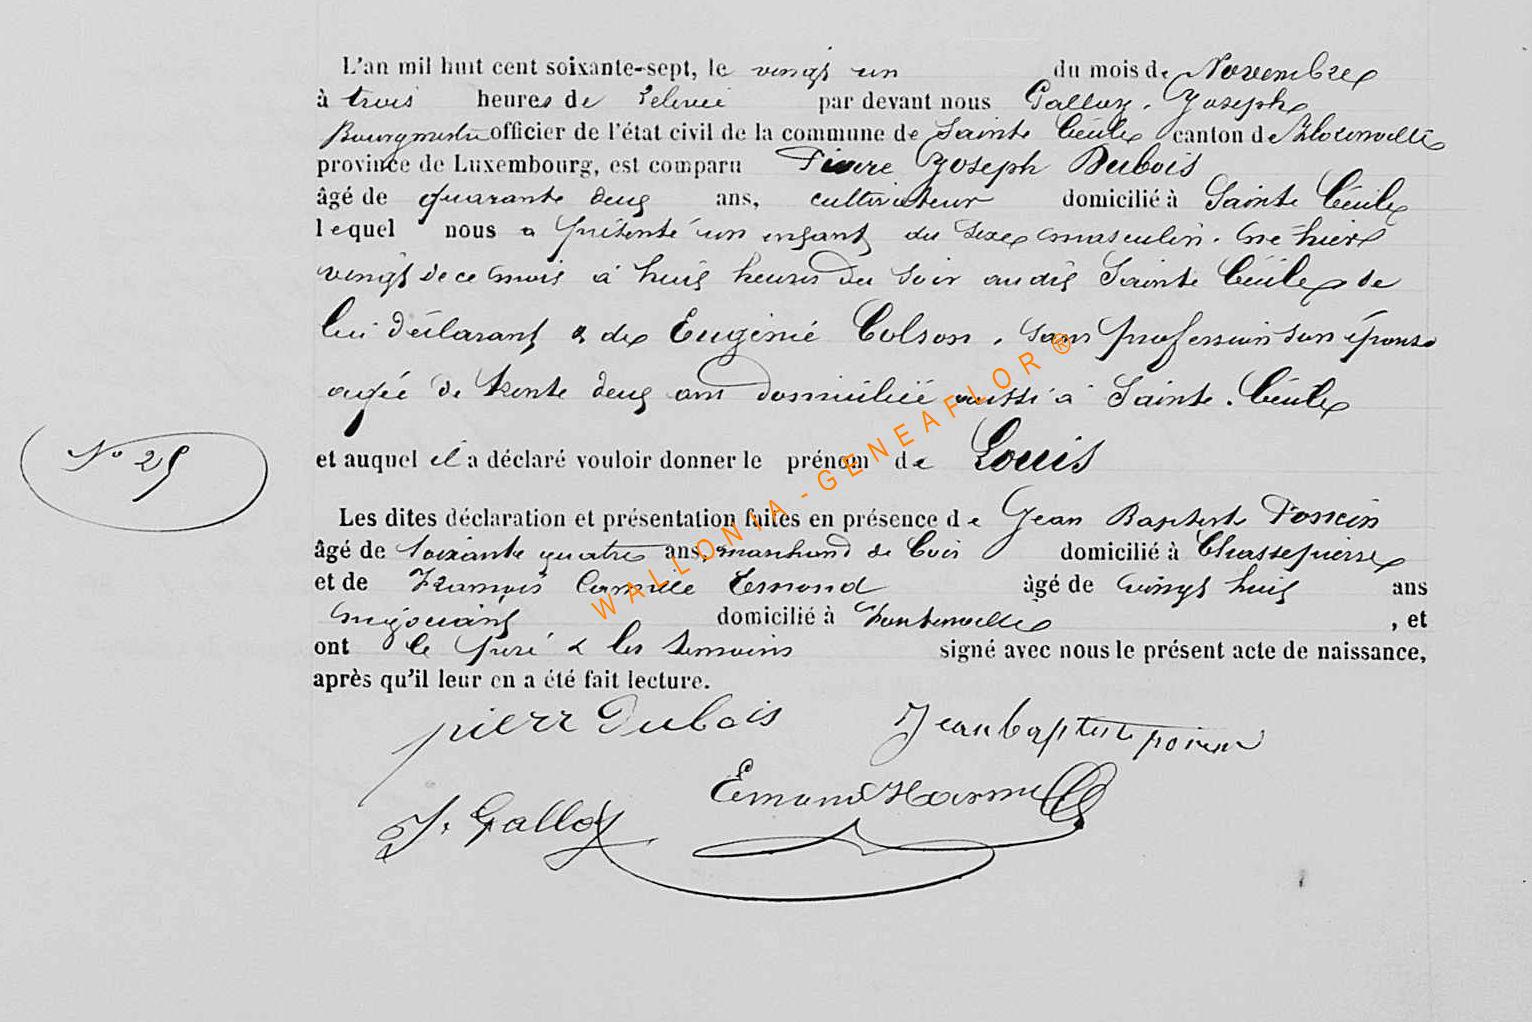 L'an mil huit cent soixante-sept, le vingt un du mois de Novembre
à trois heures de relevée par devant nous Galloy, Joseph
Bourgmestre officier de l'état civil de la commune de Sainte Cécile canton de Florenville
province de Luxembourg, est comparu Pierre Joseph Dubois
âgé de quarante deux ans, cultivateur domicilié à Sainte Cécile
lequel nous a présenté un enfant du sexe masculin. né hier
vingt de ce mois à huit heures du soir audit Sainte Cécile de
lui déclarant & de Eugénie Colson, sans profession son épouse
agée de trente deux ans domiciliée aussi à Sainte. Cécile
N° 25
et auquel il a déclaré vouloir donner le prénom de Louis
Les dites déclaration et présentation faites en présence de Jean Baptiste
âgé de soixante quatre ans, marchand de bois domicilié à Chassepierre
et de François Camille Esmond âgé de vingt huit ans
négociant domicilié à Fontenoille, et
ont le père & les témoins signé avec nous le présent acte de naissance,
après qu'il leur en a été fait lecture.
pierr Dubois Jean baptiste
J. Galloy
WALLONIA-GENEAFLOR®